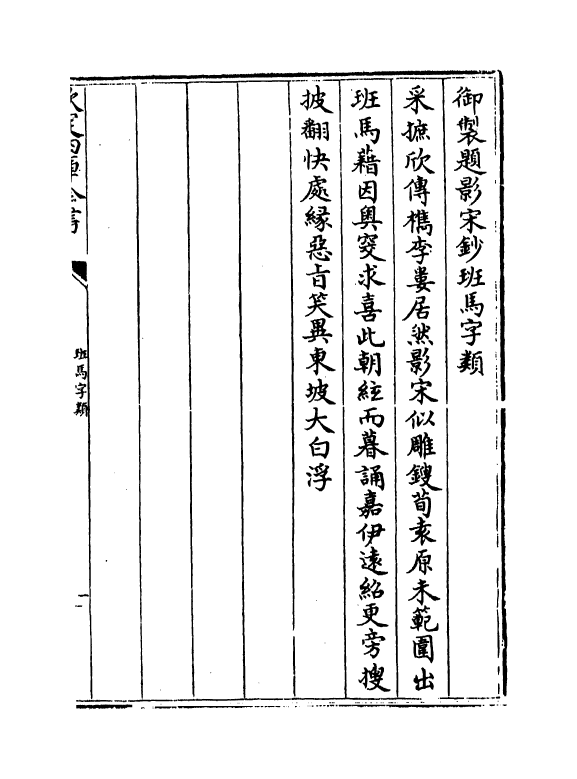 御製題影宋鈔班馬字類
采摭欣傳檇李婁居然影宋似雕鎪荀袁原未範圍出
班馬藉因奥窔求喜此朝絃而暮誦嘉伊遠紹更旁搜
披翻快處緣惡㫖笑異東坡大白浮
欽定四庫全書
班馬字類
一